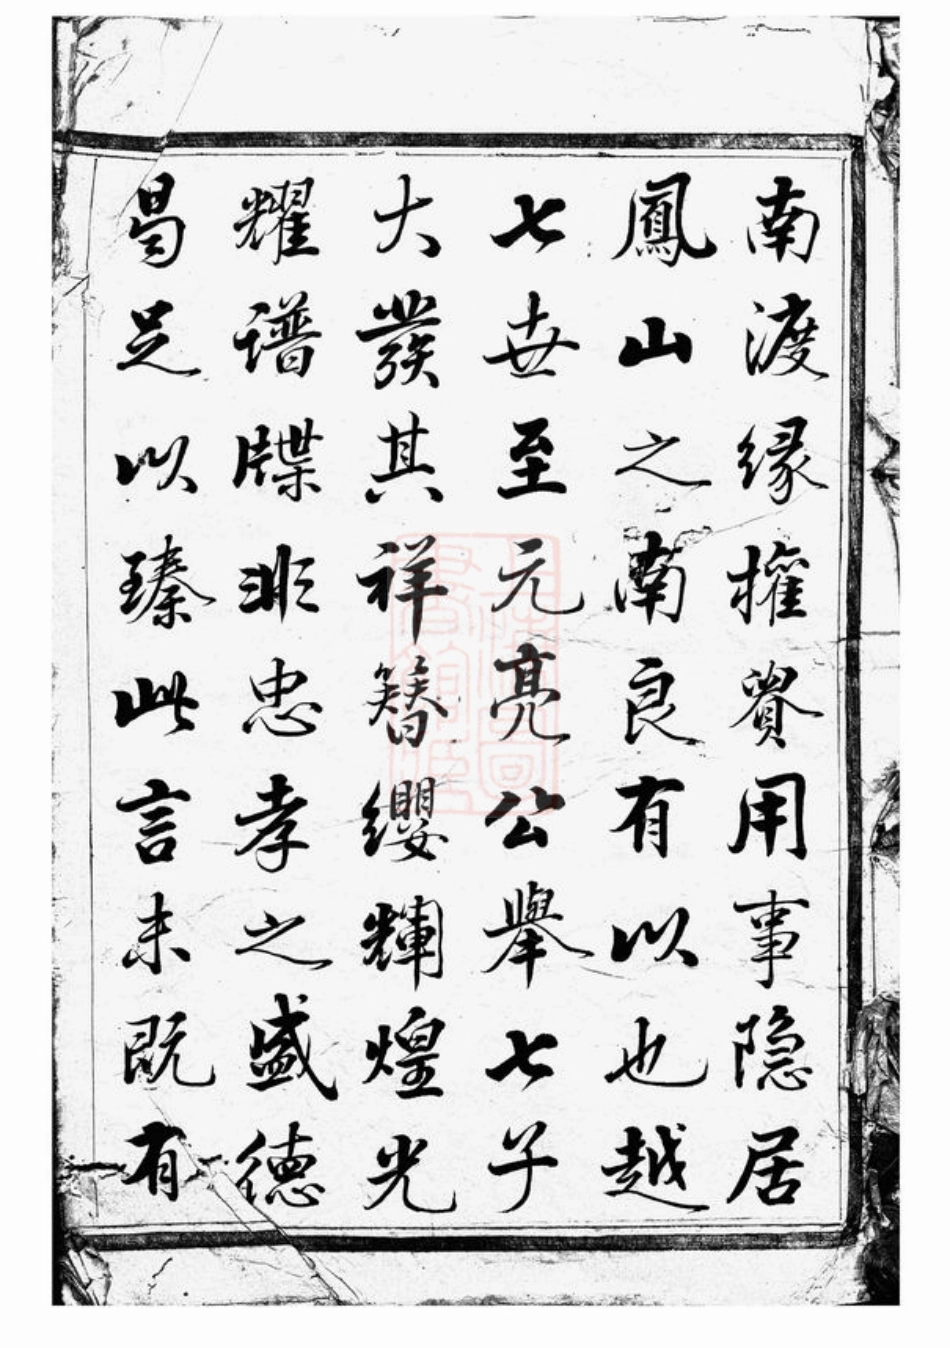 南渡缘擁貲用事隐居
鳳山之南良有以也越
七世至元亮公舉七子
大發其祥簪纓輝煌光
耀譜牒非忠孝之盛德
曷足以臻此言未既有